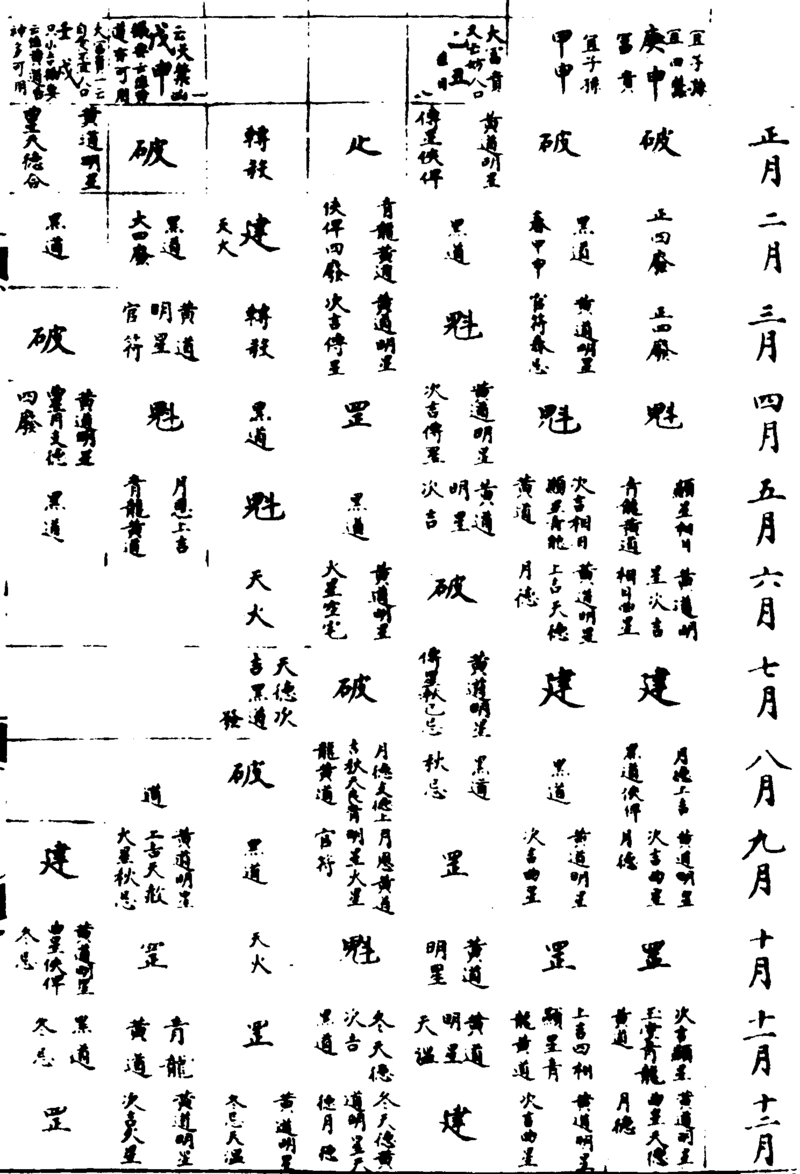 正月
二月
三月
四月
五月
六月
七月
八月
九月
十月
十一月
十二月
宜子孫
宜田蠶
庚申
富貴
破
正四廢
正四廢
魁
顯星相日
青龍黃道
黃道明
星次吉
相日曲星
建
月德上吉
黑道俠俾
黃道明星
次吉曲星
月德
罡
次吉顯星
玉堂青龍
黃道
黃道明星
曲星天德
月德
宜子孫
甲申
破
黑道
春甲申
黃道明星
官符春忌
魁
次吉相日
顯星青龍
黃道
黃道明星
上吉天德
月德
建
黑道
黃道明星
次吉曲星
罡
上吉四相
顯星青
龍黃道
黃道明星
次吉曲星
大富貴
又云妨人口
丑
黃道明星
傳星俠俾
黑道
魁
黃道明星
次吉傳星
黃道
明星
次吉
破
黃道明星
傳星秋己忌
黑道
秋忌
罡
黃道
明星
黃道
明星
天瘟
建
止
青龍黃道
俠俾四廢
黃道明星
次吉傳星
罡
黑道
黃道明星
火星空宅
破
月德支德上
吉秋天良青
龍黃道
月恩黃道
明星火星
官符
魁
冬天德
次吉
黑道
冬天德黃
道明星天
德月德
轉殺
建
天火
轉殺
黑道
魁
天火
天德次
吉黑道
發
破
黑道
天火
罡
黃道明星
冬忌天瘟
云天集凶
戊申
道亦可用
破
黑道
大四廢
黃道
明星
官符
魁
月恩上吉
青龍黃道
道
黃道明星
上吉天赦
火星秋忌
罡
青龍
黃道
黃道明星
次吉火星
大富貴一云
壬戌
神多可用
黃道明星
曲星天德合
黑道
破
黃道明星
曲星月支德
四廢
黑道
建
黃道明星
曲星俠俾
冬忌
黑道
冬忌
罡